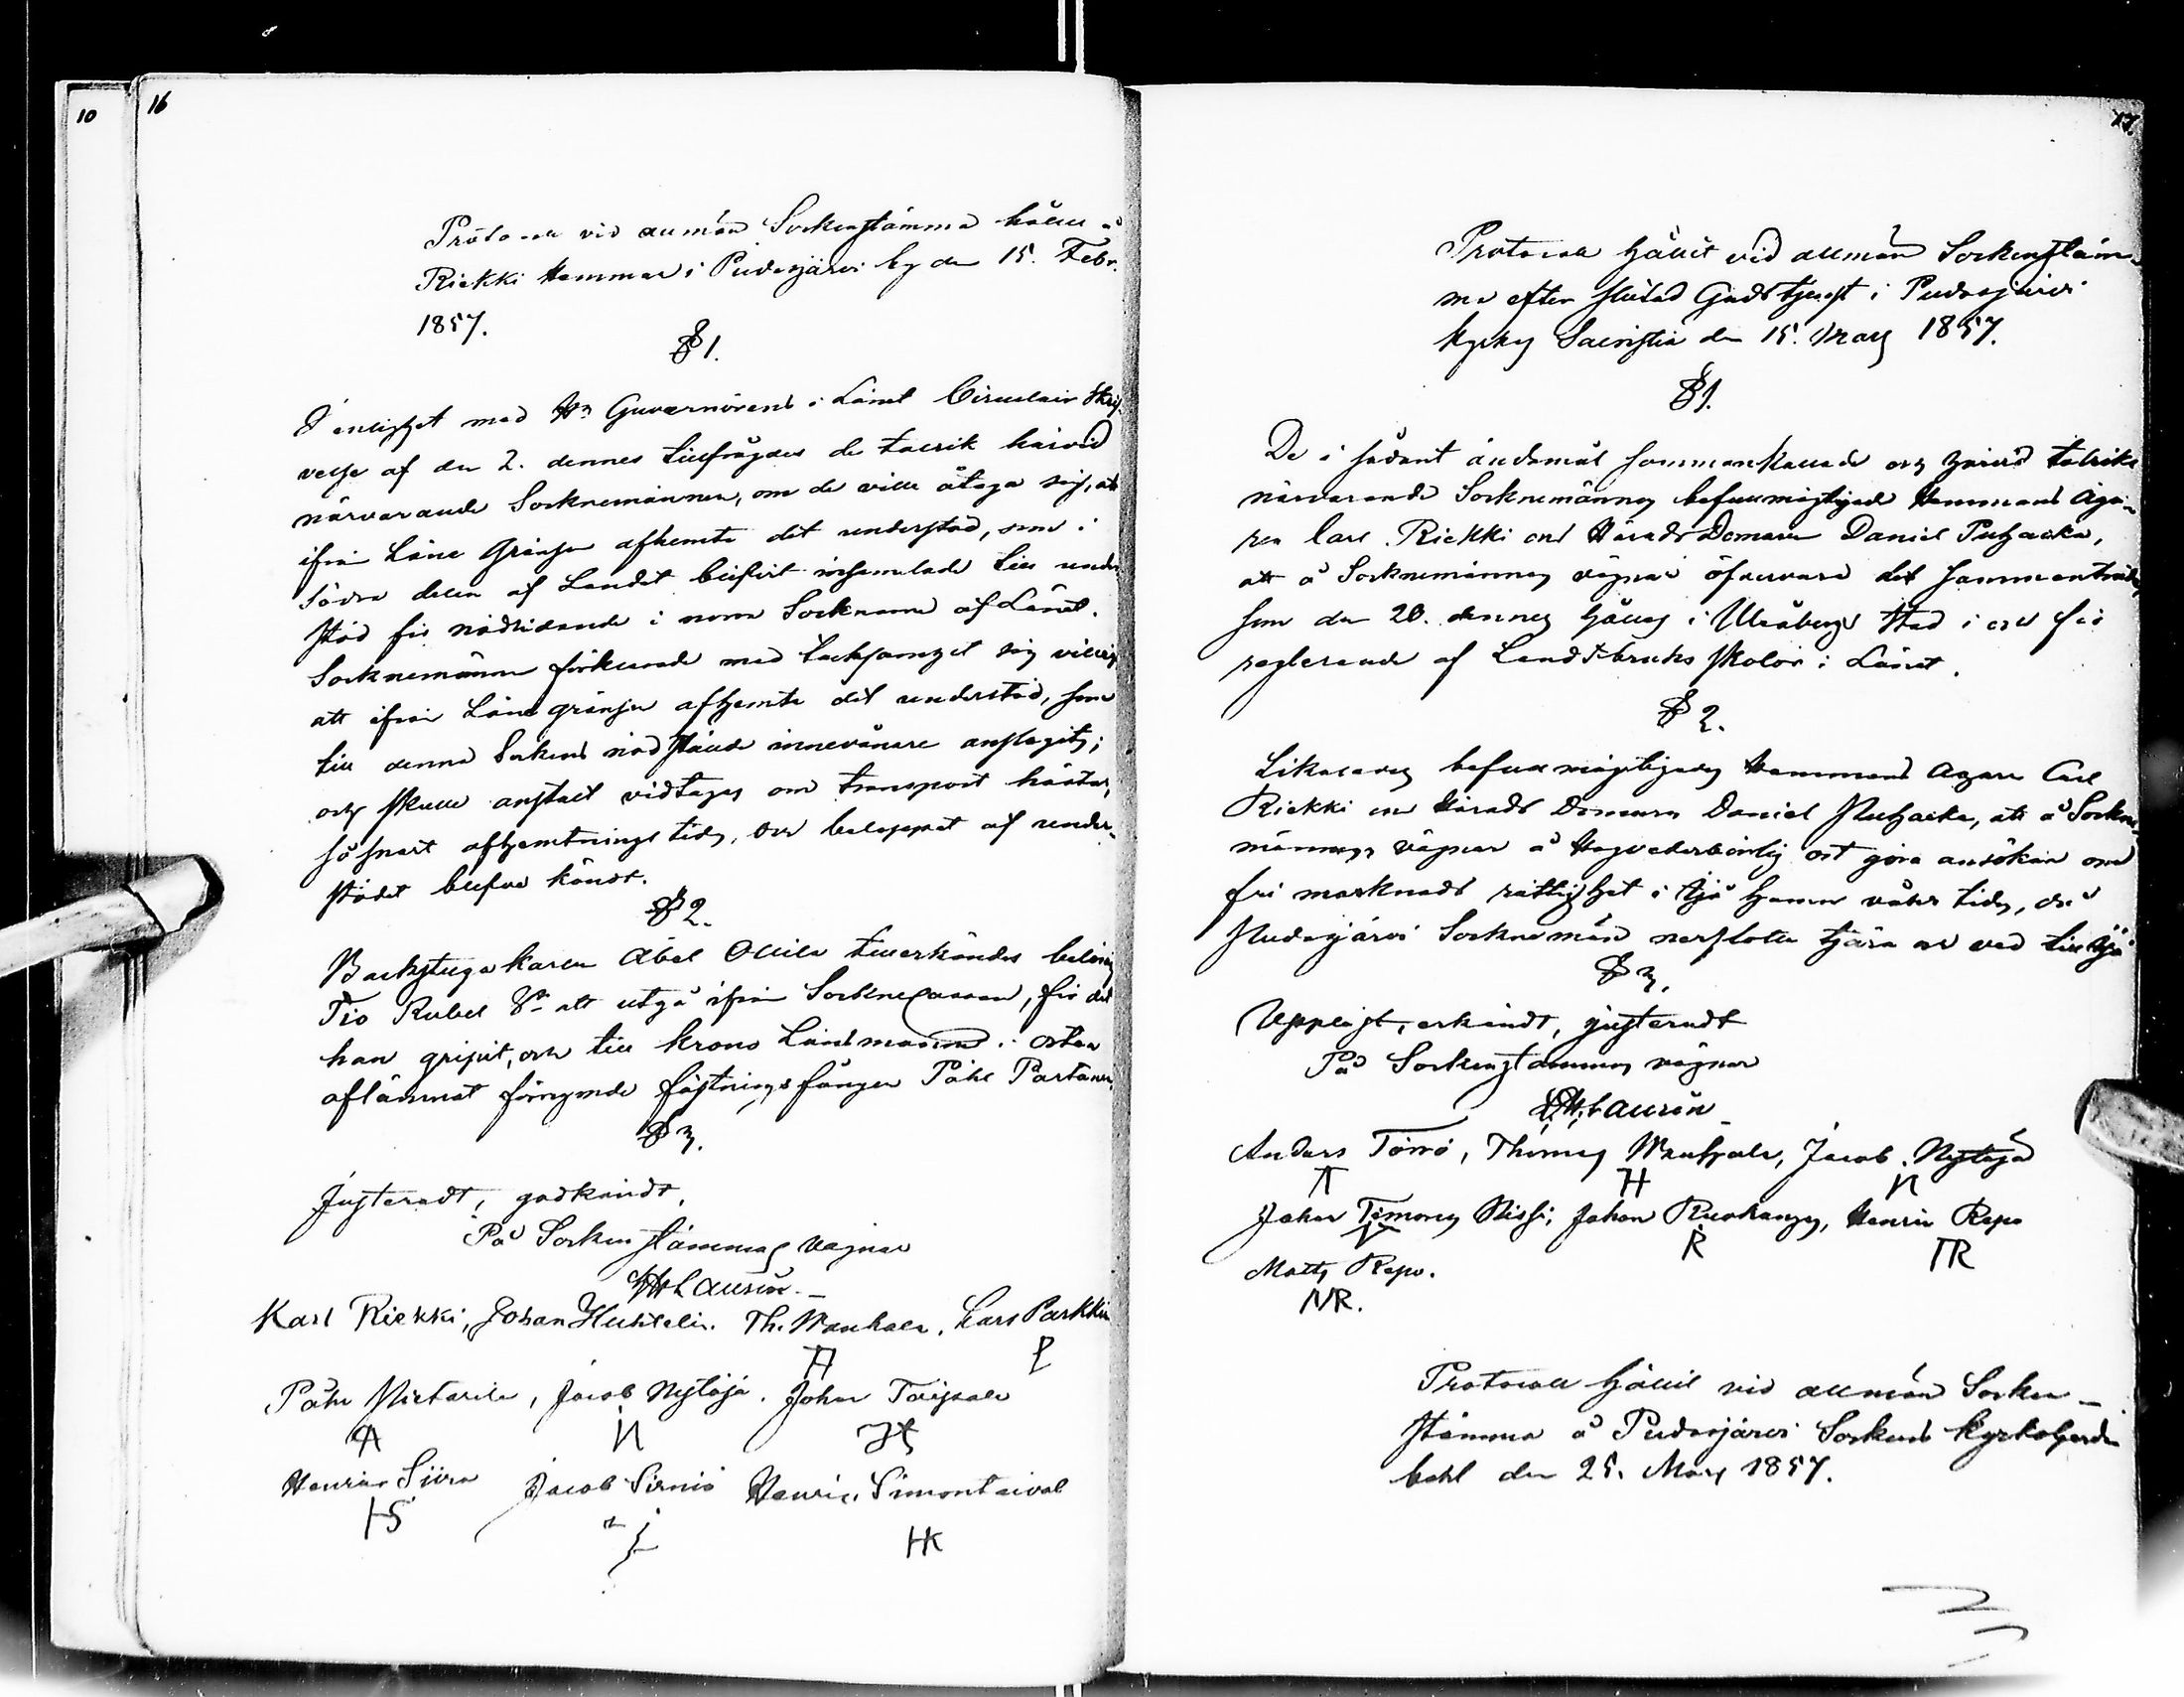 10
16
Protocoll vid allmän Sockenstämma hållen å
Riekki Hemman i Pudasjärvi by den 15. Febr.
1857.
§ 1.
I enlighet med Hr Guvernörens i Länet Circulair Skrif-
velse af den 2. dennes tillfrågades de talrik härvid
närvarande Socknemännen, om de ville åtaga sig, att
ifrån Läne Gränsen afhemta det understöd, som i
södra delen af Landet blifvit insamlade till under-
stöd för nödlidande i norra Socknarne af Länet.
Socknemännen förklarade med tacksamhet sig villig
att ifrån Läne gränsen afhemta det understöd, som
till denna Sockens nödstälde innevånare anslagits;
och skulle anstalt vidtagas om transport hästar,
så snart afhemtnings tiden, och beloppet af under-
stödet blifva kändt.
§ 2.
Backstuga karlen Abel Ollila tillerkändes belöning
Tio Rubel Sr att utgå ifrån Sockne Cassan, för det
han gripit, och till krono Länsmannen i orten
aflämnat förrymde fästnings fången Påhl Partanen.
§ 3.
Justeradt, godkändt,
På Sockenstämmans vägnar
Laurin.
Karl Riekki, Johan Huhtelin. Th. Wanhala, Lars Parkkila
P
Påhl Pietarila, Jacob Nytäjä. Johan Taipale
N
Henric Siira Jacob Sirniö Henric Simontaival
HS
HK
17.
Protocoll hållit vid allmän Sockenstäm-
ma efter slutad Gudstjenst i Pudasjärvi
kyrkas Sacristia den 15. Mars 1857.
§ 1.
De i sådant ändamål sammankallade och härvid talrikt
närvarande Socknemännen befullmägtigade Hemmans ägа-
ren Carl Riekki och Härads Domaren Daniel Puhakka,
att å Socknemännens vägnar öfvervara det sammanträde
som den 20. dennes hålles i Uleåborgs stad i och för
reglerande af Landtbruks skolor i Länet.
§ 2.
Likaledes befullmägtigades Hemmans ägaren Carl
Riekki och Härads Domaren Daniel Puhakka, att å Sockne-
männens vägnar å Vederbörlig ort göra ansökan om
fri marknads rättighet i Ijå hamn vårtiden, då
Pudasjärvi Socknemän nerflotta tjära och ved till Ijå
§ 3.
Uppläst, erkändt, justeradt
På Sockenstämmans vägnar
Laurin
Anders Törrö, Thomas Wanhala, Jacob Nytäjä
H N
Johan Timonen Nissi, Johan Ruokanen, Henric Repo
R HR
Matts Repo.
MR.
Protocoll hållit vid allmän Socken-
stämma å Pudasjärvi Sockens kyrkoherde
bohl den 25. Mars 1857.